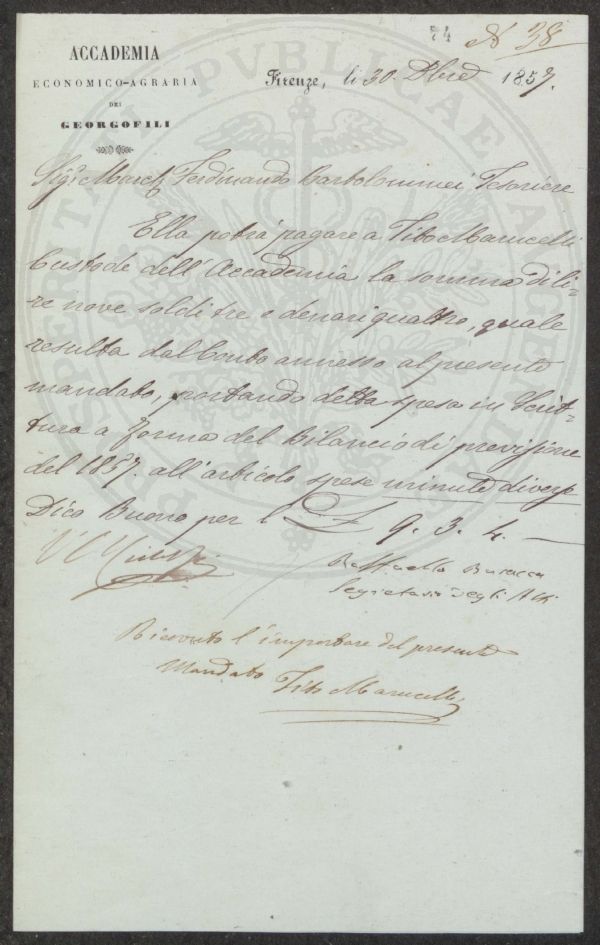 74
N 38
ACCADEMIA
ECONOMICO-AGRARIA
DEI
GEORGOFILI
Firenze, li 30. Xbre 1857.
Sigr. March. Ferdinando Bartolommei Tesoriere
Ella potrà pagare a Tito Marucelli
Custode dell'Accademia la somma di li=
re nove soldi tre e denari quattro, quale
resulta dal Conto annesso al presente
mandato, portando detta spesa in Scrit=
tura a forma del Bilancio di previsione
del 1857. all'articolo spese minute diverse
Dico Buono per £ 9. 3. 4.
Raffaello Busacca
Segretario degli Atti
Ricevuto l'importare del presente
Mandato Tito Marucelli
PROSPERITATI PVBLICAE AVGENDAE